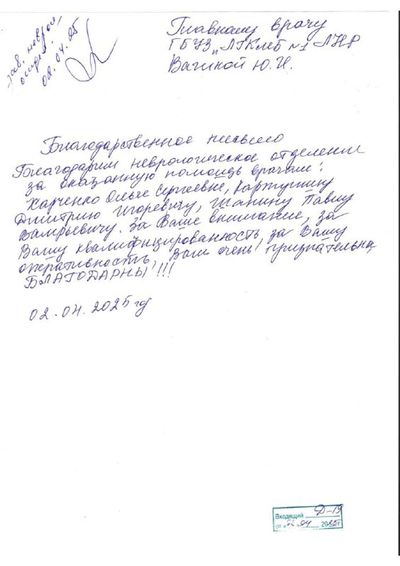 зав. невролог.
отдел.
02.04.25
Главному врачу
ГБУЗ „ЛГКМБ №1" ЛНР
Вагиной Ю.И.
Благодарственное письмо
Благодарим неврологическое отделение
за оказанную помощь врачам:
Харченко Ольге Сергеевне,
Дмитрию Игоревичу, Шанину Павлу
Валерьевичу. За Ваше внимание, за
Вашу квалифицированность, за Вашу
оперативность. Вам очень признательны,
БЛАГОДАРНЫ!!!
02.04.2025 год
Входящий Д-19
от 04 2025г